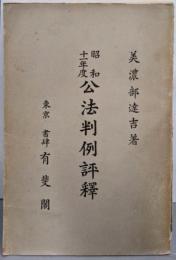 美濃部達吉著
昭和十一年度
公法判例評釋
東京 書肆 有斐閣